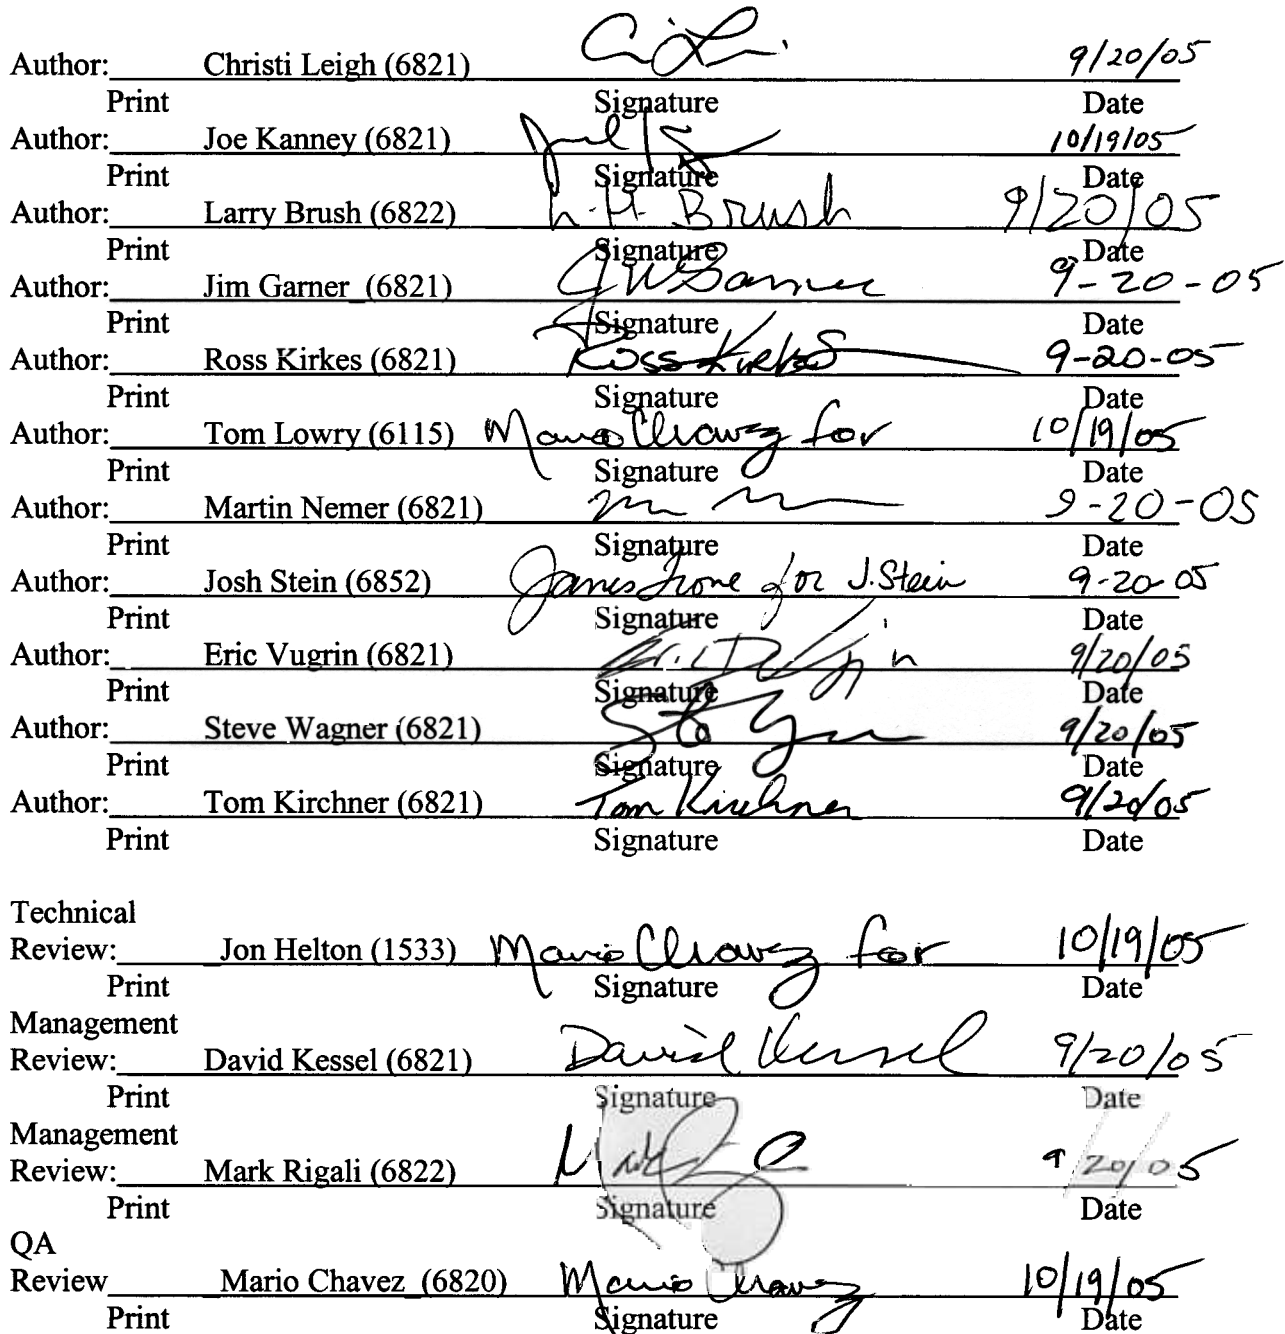 Author: Christi Leigh (6821) 9/20/05
Print Signature Date
Author: Joe Kanney (6821) 10/19/05
Print Signature Date
Author: Larry Brush (6822) L.H. Brush 9/20/05
Print Signature Date
Author: Jim Garner (6821) JW Garner 9-20-05
Print Signature Date
Author: Ross Kirkes (6821) Ross Kirkes 9-20-05
Print Signature Date
Author: Tom Lowry (6115) Mario Chavez for 10/19/05
Print Signature Date
Author: Martin Nemer (6821) 9-20-05
Print Signature Date
Author: Josh Stein (6852) James Trone for J. Stein 9-20-05
Print Signature Date
Author: Eric Vugrin (6821) 9/20/05
Print Signature Date
Author: Steve Wagner (6821) 9/20/05
Print Signature Date
Author: Tom Kirchner (6821) Tom Kirchner 9/20/05
Print Signature Date
Technical
Review: Jon Helton (1533) Mario Chavez for 10/19/05
Print Signature Date
Management
Review: David Kessel (6821) David Kessel 9/20/05
Print Signature Date
Management
Review: Mark Rigali (6822) 9/20/05
Print Signature Date
QA
Review Mario Chavez (6820) Mario Chavez 10/19/05
Print Signature Date